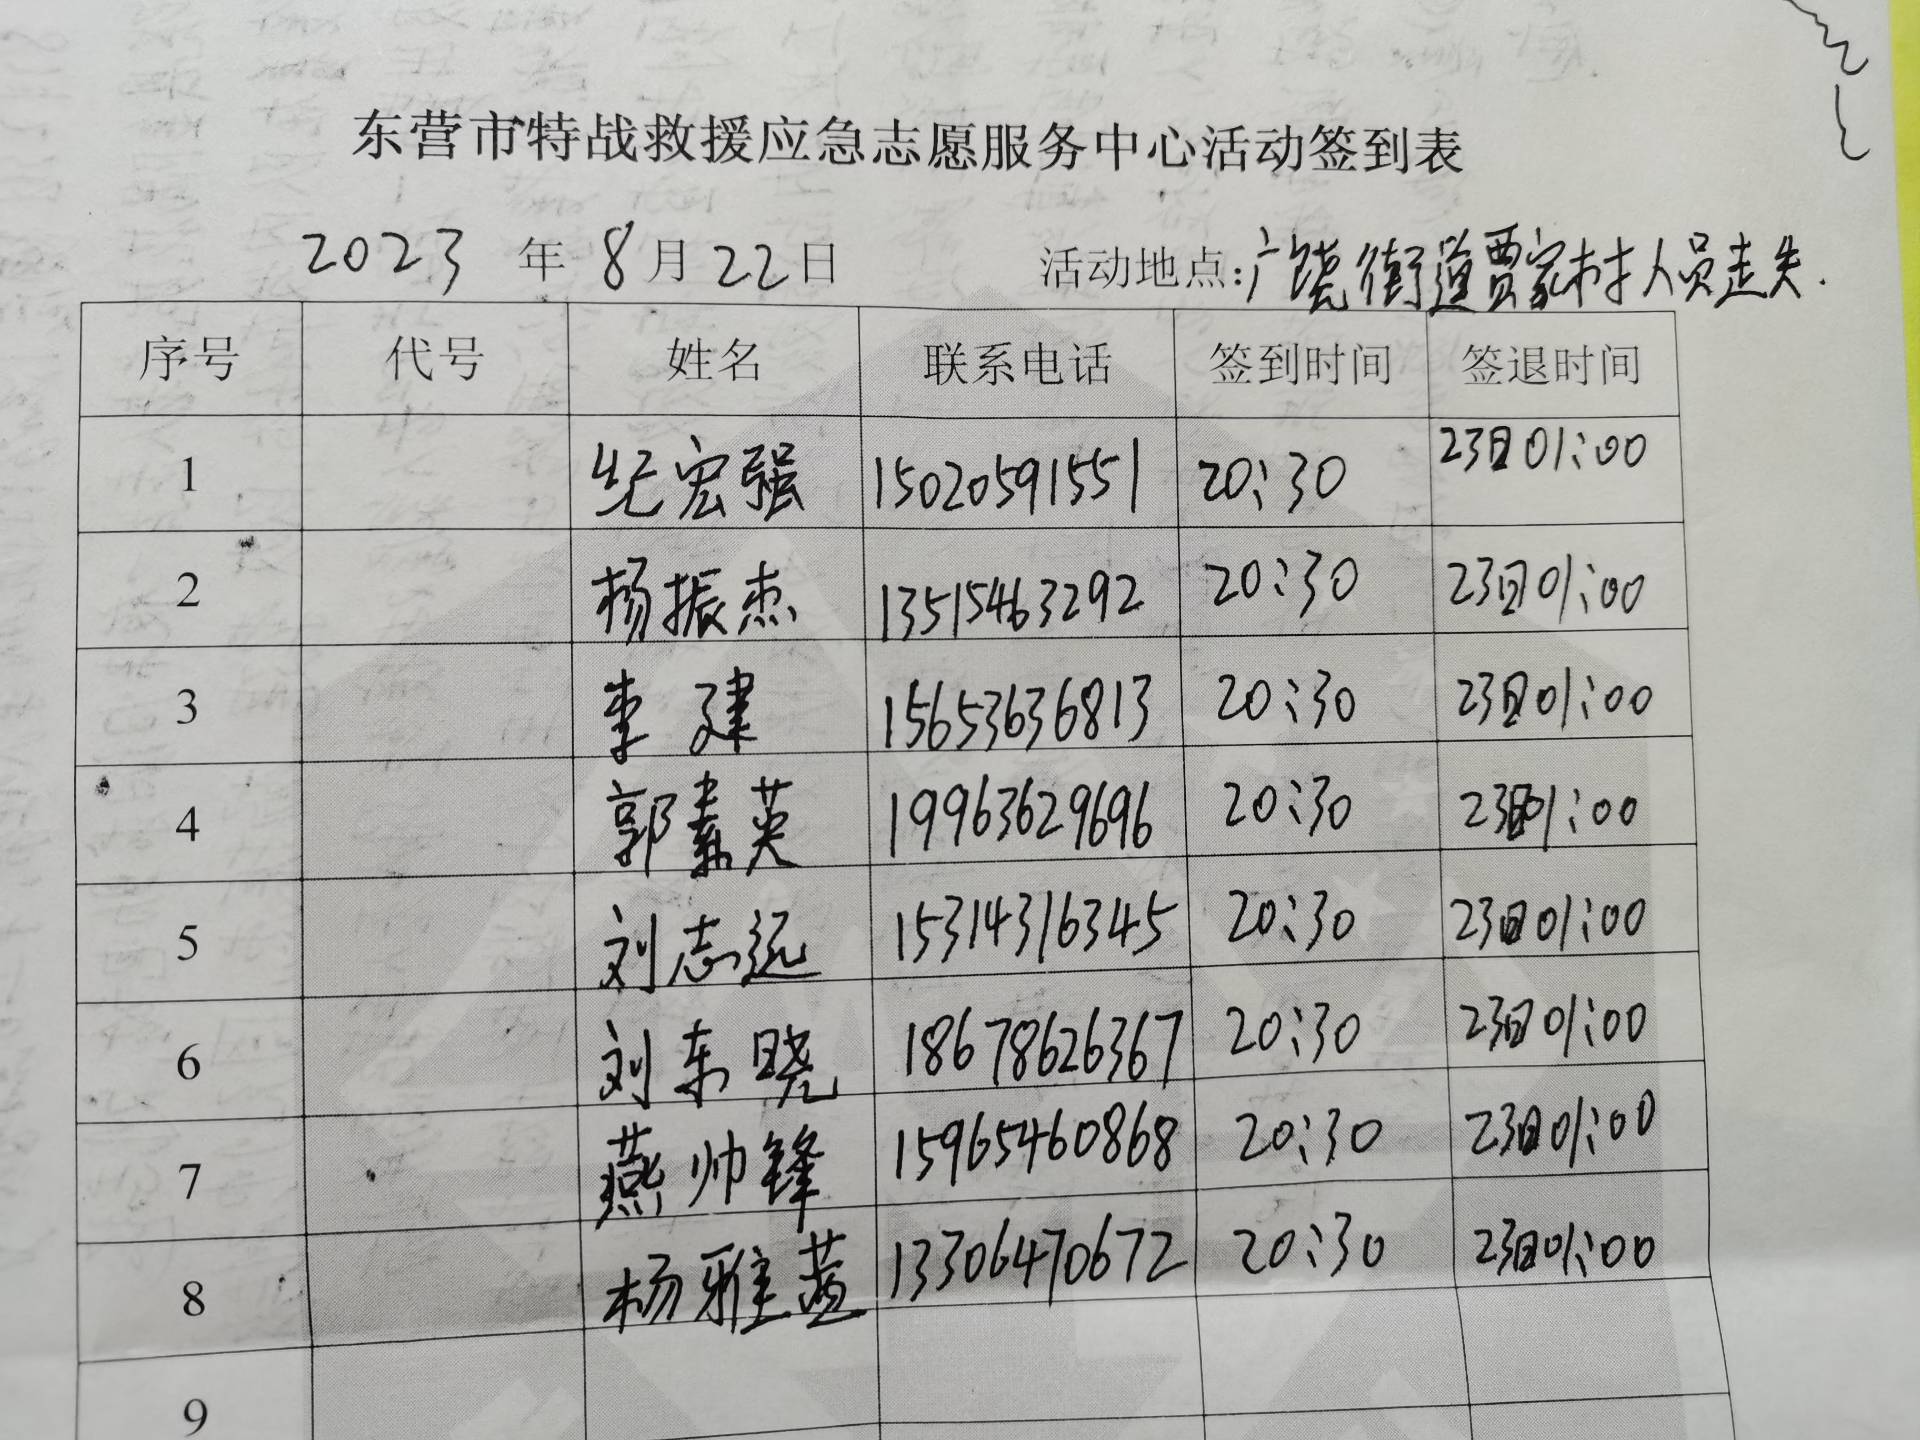 东营市特战救援应急志愿服务中心活动签到表
2023 年 8 月 22 日 活动地点:广饶街道贾家村人员走失.
序号 代号 姓名 联系电话 签到时间 签退时间
1 纪宏强 15020591551 20:30 23日01:00
2 杨振杰 13515463292 20:30 23日01:00
3 李建 15653636813 20:30 23日01:00
4 郭素英 19963629696 20:30 23日01:00
5 刘志远 15314316345 20:30 23日01:00
6 刘东晓 18678626367 20:30 23日01:00
7 燕帅锋 15965460868 20:30 23日01:00
8 杨雅 13306470672 20:30 23日01:00
9